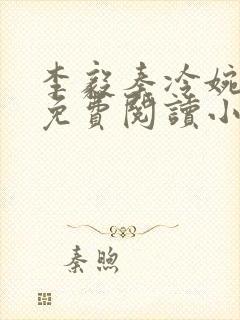 李毅秦冷婉
免費閱讀小
秦煦